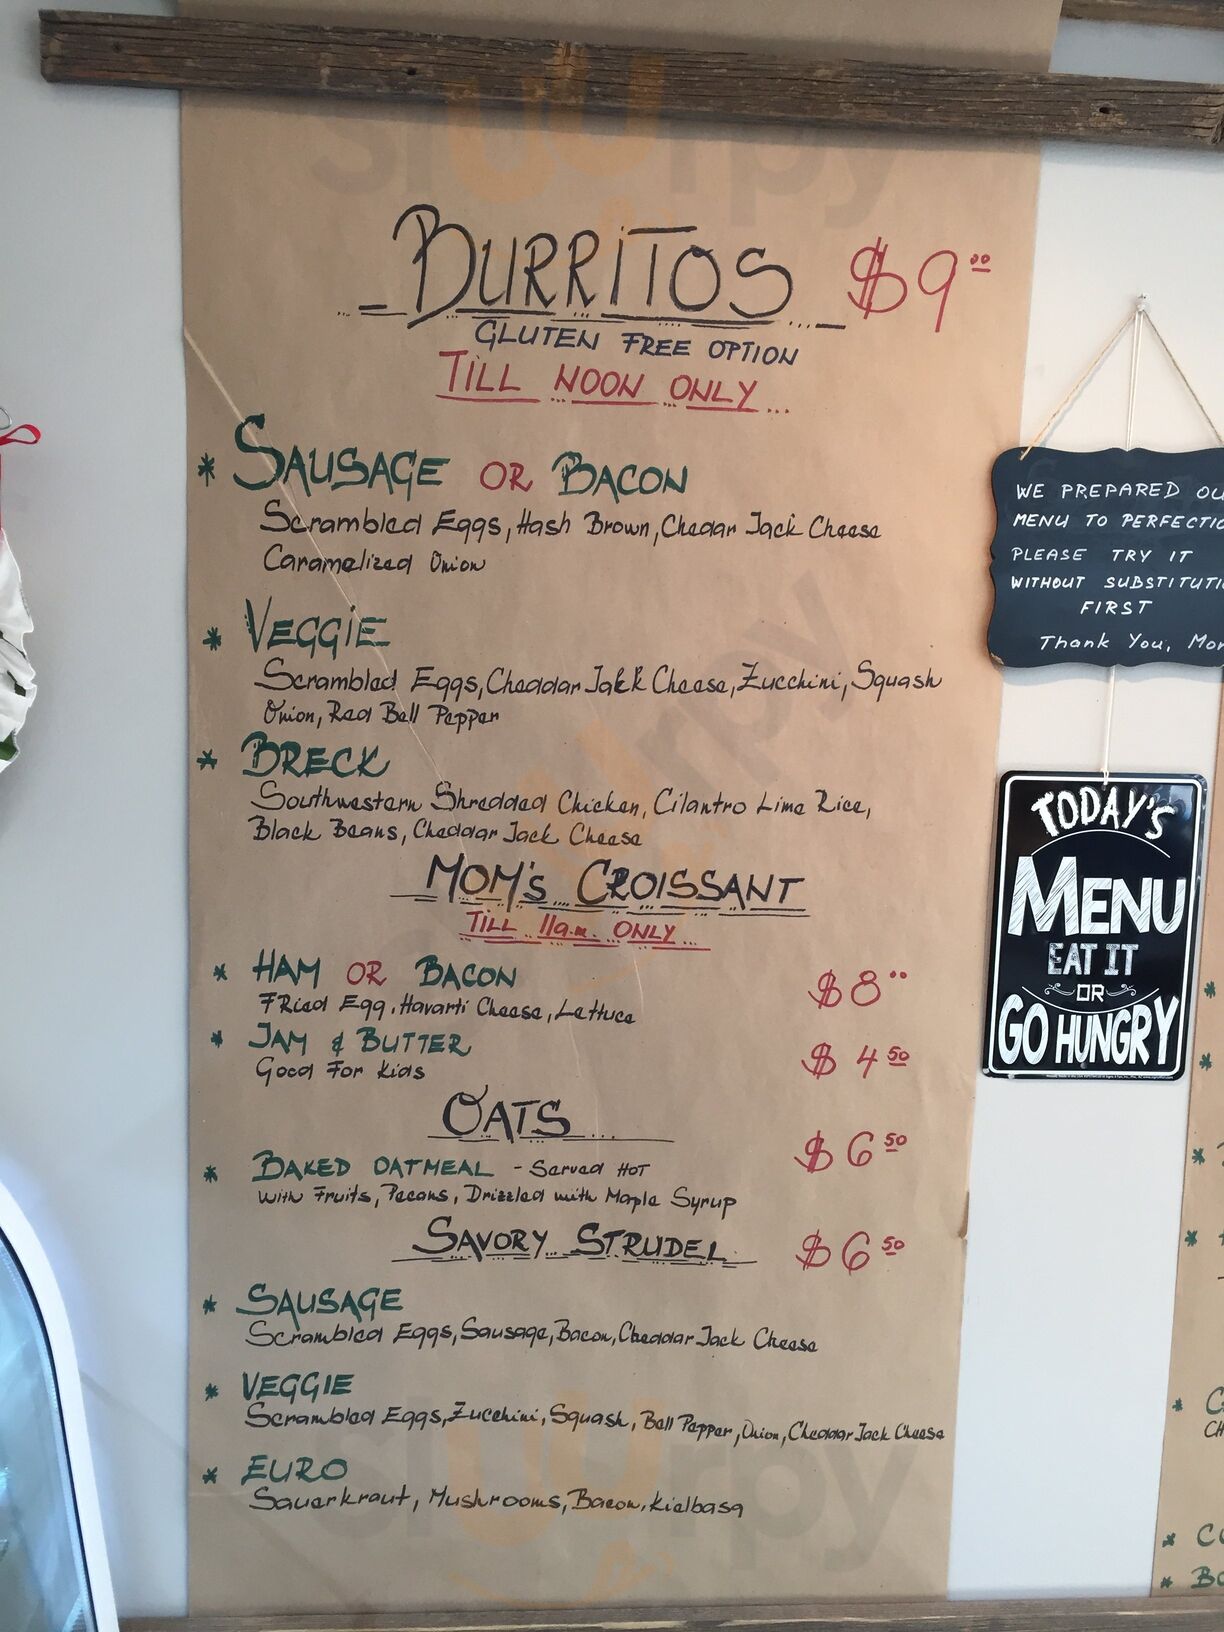 BURRITOS $9.00
GLUTEN FREE OPTION
TILL NOON ONLY...
* SAUSAGE OR BACON
Scrambled Eggs, Hash Brown, Chedar Jack Cheese
Caramelized Onion
* VEGGIE
Scrambled Eggs, Cheddar Jack Cheese, Zucchini, Squash
Onion, Red Bell Pepper
* BRECK
Southwestern Shredded Chicken, Cilantro Lime Rice,
Black Beans, Cheddar Jack Cheese
MOM's CROISSANT
TILL 11a.m. ONLY...
* HAM OR BACON $8.00
Fried Egg, Havarti Cheese, Lettuce
* JAM & BUTTER $4.50
Good For Kids
OATS...
* BAKED OATMEAL - Served HOT $6.50
with Fruits, Pecans, Drizzled with Maple Syrup
SAVORY STRUDEL $6.50
* SAUSAGE
Scrambled Eggs, Sausage, Bacon, Cheddar Jack Cheese
* VEGGIE
Scrambled Eggs, Zucchini, Squash, Bell Pepper, Onion, Cheddar Jack Cheese
* EURO
Sauerkraut, Mushrooms, Bacon, Kielbasa
WE PREPARED
MENU TO
PLEASE TRY IT
WITHOUT
FIRST
Thank You,
TODAY'S
MENU
EAT IT
OR
GO HUNGRY
sluurpy
sluurpy
sluurpy